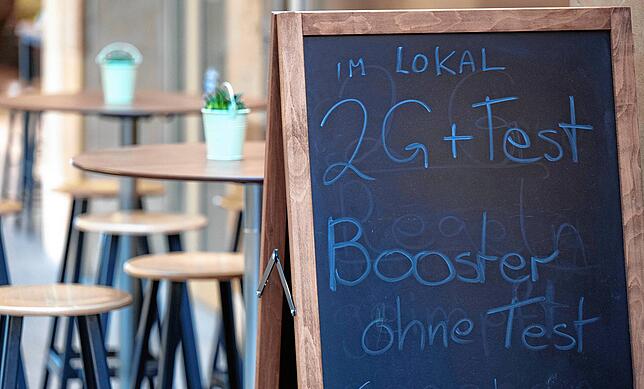 IM LOKAL
2G+Test
Booster
ohne Test